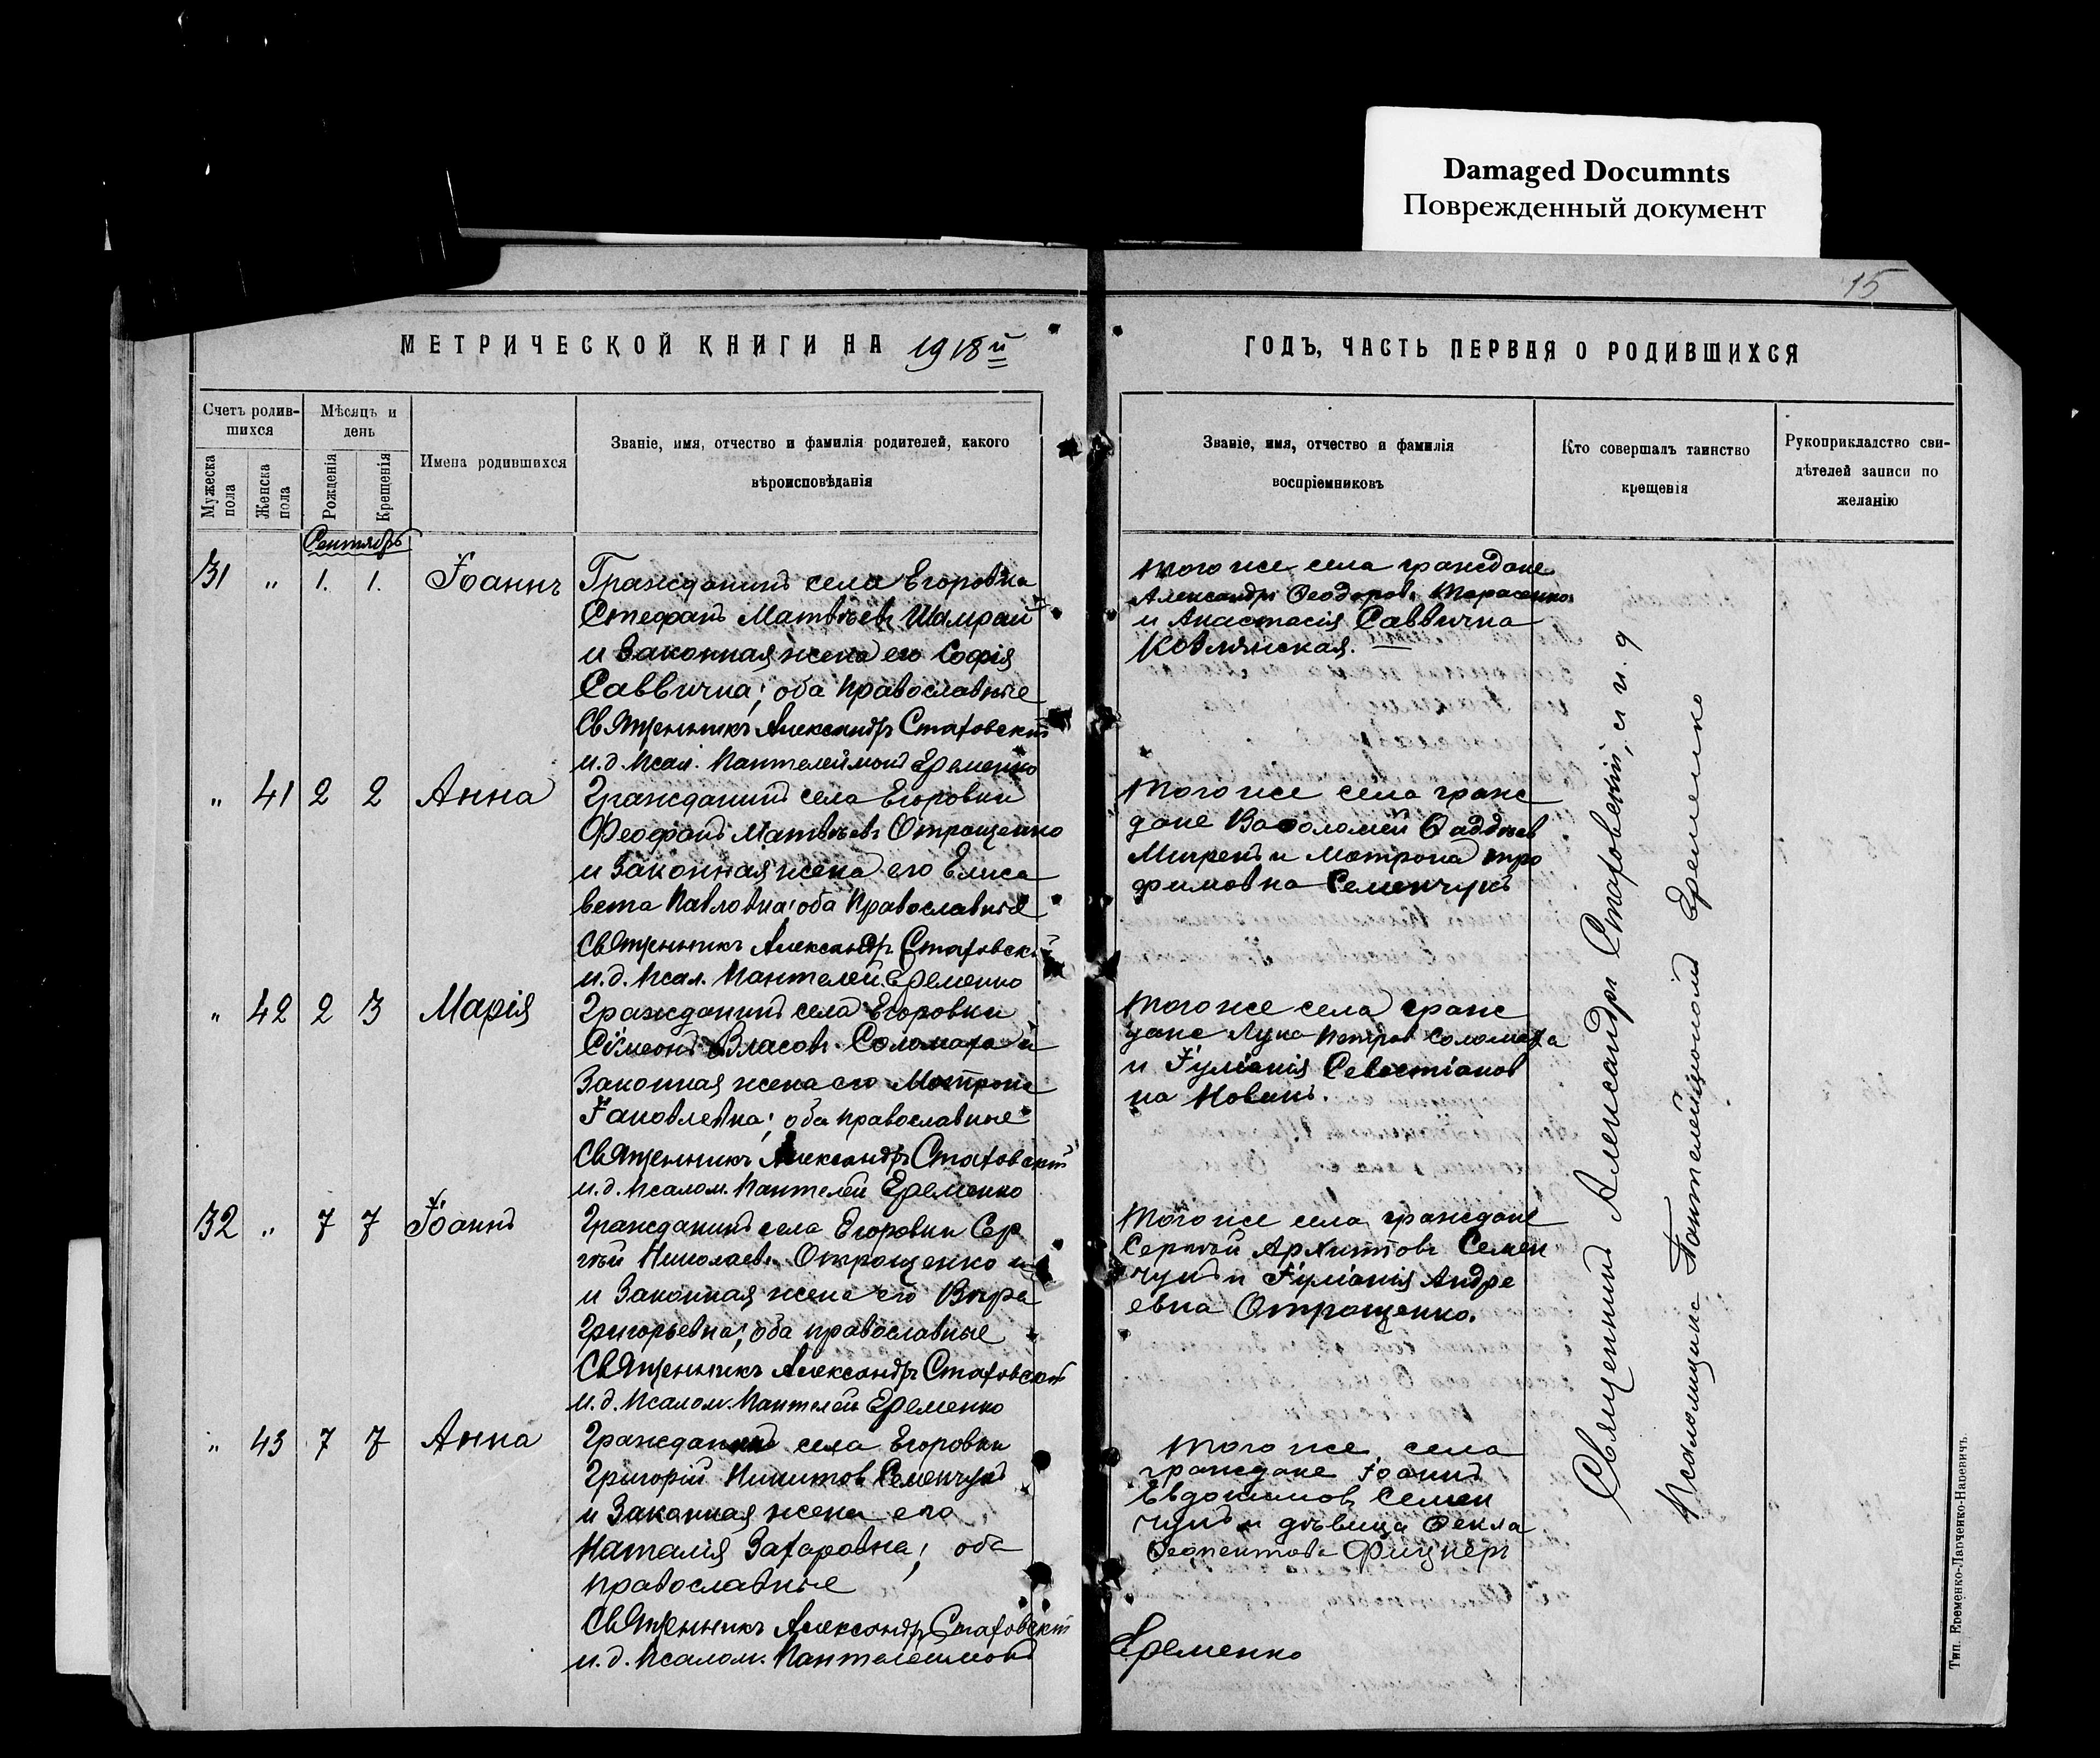 Damaged Documnts
Поврежденный документ
15
МЕТРИЧЕСКОЙ КНИГИ НА 1918й
ГОДЪ, ЧАСТЬ ПЕРВАЯ О РОДИВШИХСЯ
Счетъ родив-
шихся
Мужеска
пола
Женска
пола
Мѣсяцъ и
день
Рожденія
Крещенія
Имена родившихся
Званіе, имя, отчество и фамилія родителей, какого
вѣроисповѣданія
Званіе, имя, отчество и фамилія
воспріемниковъ
Кто совершалъ таинство
крещенія
Рукоприкладство сви-
дѣтелей записи по
желанію
Сентябрь
31 " 1. 1. Іоаннъ
Гражданинъ села Егоровки
Стефанъ Матвѣевъ Шамрай
и законная жена его Софія
Саввична; оба православные
Священникъ Александръ Стаховскій
и.д. псал. Пантелеймонъ Еременко
того же села граждане
Александръ Ѳеодоровъ Тарасенко
и Анастасія Саввична
" 41 2 2 Анна
Гражданинъ села Егоровки
Феофанъ Матвѣевъ Отрощенко
и законная жена его Елиса
вета Павловна; оба православные
Священникъ Александръ Стаховскій
и.д. псал. Пантелей Еременко
того же села граж
дане Ваѳоломей Ѳаддѣев
и Мотрона Тро
фимовна Семенчукъ
" 42 2 3 Марія
Гражданинъ села Егоровки
Сѵмеонъ Власовъ Соломаха и
законная жена его Мотрона
Іаковлевна; оба православные
Священникъ Александръ Стаховскій
и.д. псалом. Пантелей Еременко
того же села граж
дане Лука Петров Соломаха
и Іуліанія Севастіанов
на Новакъ.
32 " 7 7 Іоаннъ
Гражданинъ села Егоровки Сер
гѣй Николаевъ Отрощенко и
и законная жена его Вѣра
Григорьевна; оба православные
Священникъ Александръ Стаховскій
и.д. псалом. Пантелей Еременко
того же села граждане
Сергѣй Архиповъ Семен
чукъ и Іуліанія Андре
евна Отрощенко.
" 43 7 7 Анна
Гражданинъ села Егоровки
Григорій Никитов Семенчукъ
и законная жена его
Наталія Захаровна; оба
православные
Священникъ Александръ Стаховскій
и.д. псалом. Пантелеимонъ Еременко
того же села
граждане Іоаннъ
Евдокимовъ Семен
чукъ и дѣвица Ѳекла
Священникъ Александръ Стаховскій, и и. д
Псаломщика Пантелеймонъ Еременко
Тип. Еременко-Ларченко-Наревичъ.